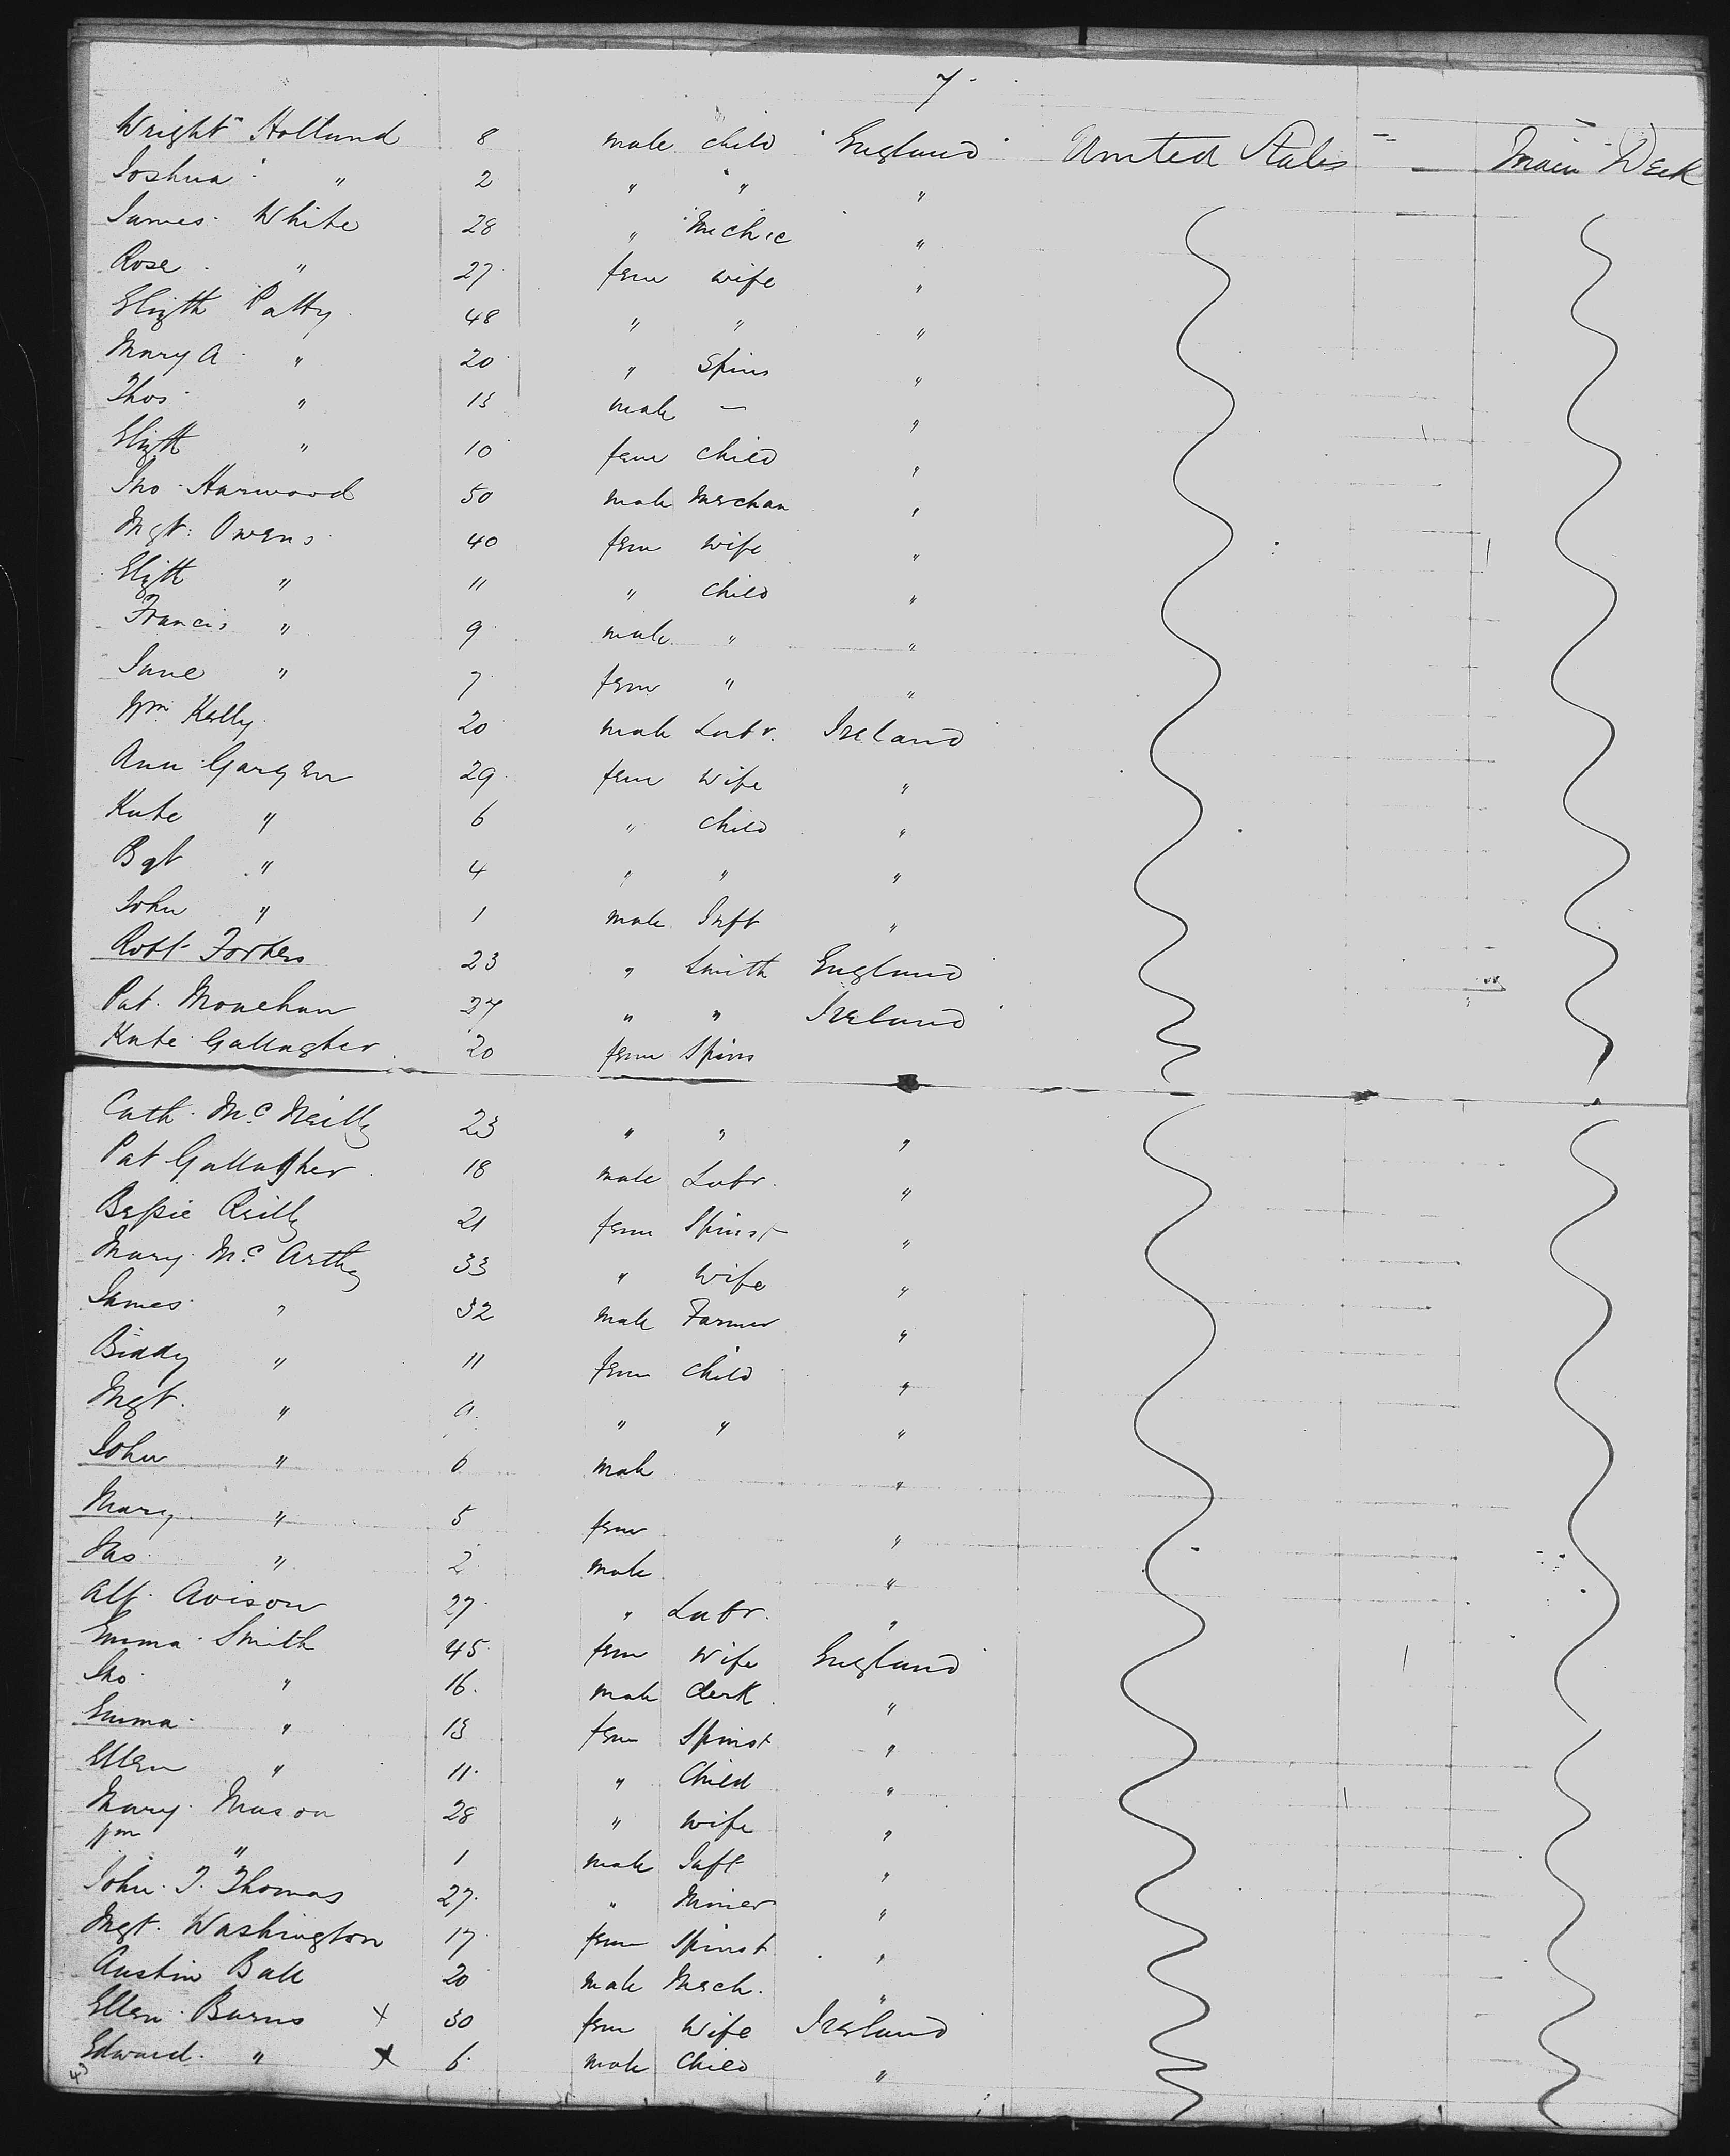 7.
Wright Holland 8 male child England United States — Main Deck
Joshua " 2 " " "
James White 28 " Mechic "
Rose " 27 fem wife "
Elizth Patty 48 " " "
Mary A " 20 " Spins "
Thos " 13 male — "
Elizth " 10 fem child "
Jno Harwood 50 male Merchan "
Mgt. Owens 40 fem wife "
Elizth " 11 " child "
Francis " 9 male " "
Jane " 7 fem " "
Wm Kelly 20 male Labr. Ireland
Ann 29 fem wife "
Kate " 6 " child "
Bgt " 4 " " "
John " 1 male Inft "
Robt 23 " Smith England
Pat. Monehan " " Ireland
Kate Gallagher 20 fem Spins
Cath. McNeilly 23 " " "
Pat Gallagher 18 male Labr. "
Bessie Reilly 21 fem Spinst "
Mary McArthy 33 " wife "
James " 32 male Farmer "
Biddy " 11 fem child "
Mgt. " " " "
John " 6 male "
Mary " 5 fem "
" 2 male "
Alf. Avison 27 " Labr. "
Emma Smith 45 fem wife England
Jno " 16. male clerk "
Emma " 13 fem Spinst "
Ellen " 11. " Child "
Mary Mason 28 " wife "
Wm " 1 male Inft "
John T. Thomas 27. " Miner "
Mgt. Washington 17 fem Spinst "
Austin Ball 20 male Mech. "
Ellen Burns x 30 fem wife Ireland
Edward " x 6. male child "